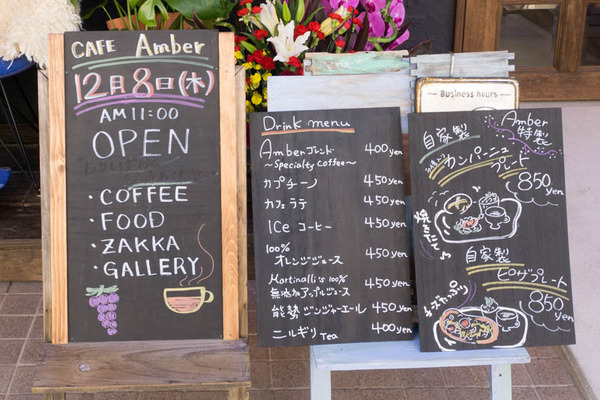 CAFE Amber
12月8日(木)
AM11:00
OPEN
・COFFEE
・FOOD
・ZAKKA
・GALLERY
Business hours
Drink menu
Amberブレンド 400yen
〜Specialty Coffee〜
カプチーノ 450yen
カフェラテ 450yen
ICe コーヒー 450yen
100%
オレンジジュース 450yen
Martinelli's 100%
無添加アップルジュース 450yen
能勢ジンジャーエール 450yen
ニルギリTea 400yen
Amber
特製
自家製
カンパーニュ
プレート
850
yen
自家製
ピザプレート
850
yen
チーズたっぷり